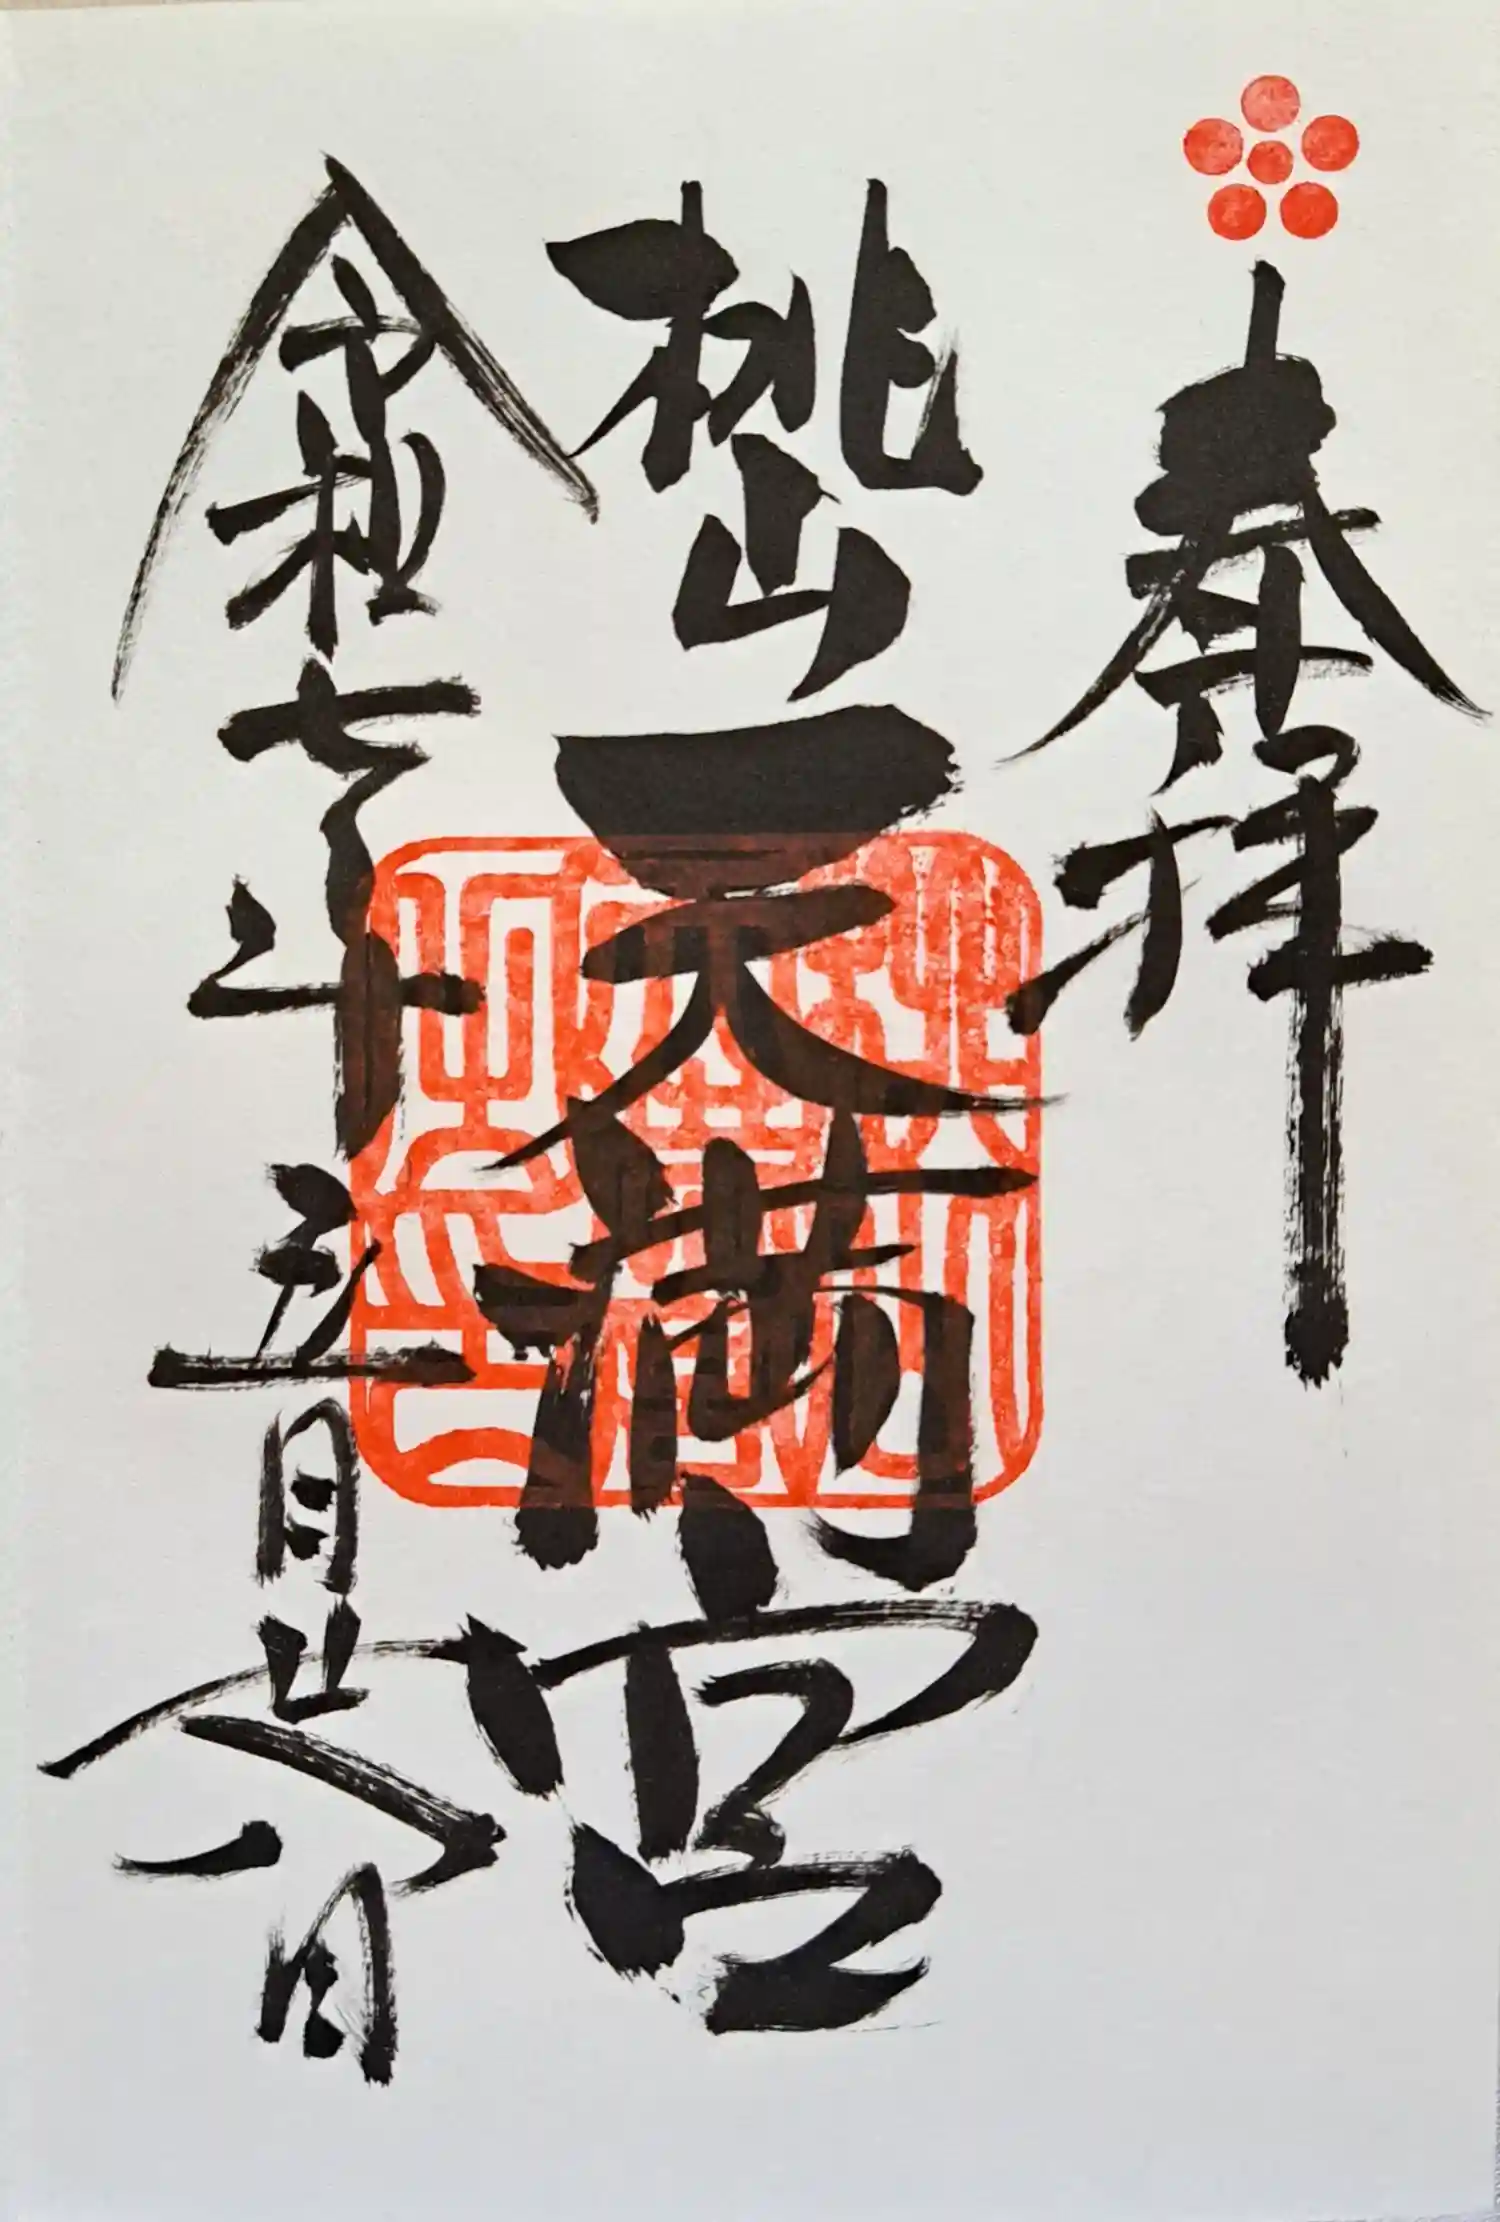 奉拝
桃山天満宮
令和七年五月廿八日